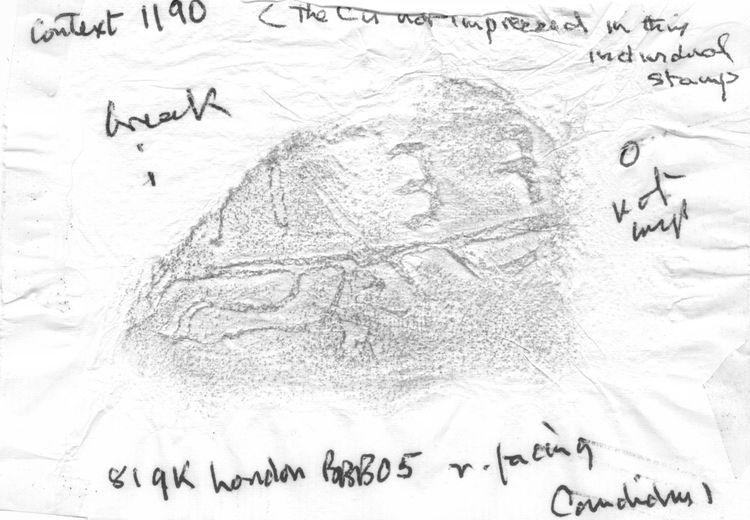 Context 1190
(The CU not impressed in this
individual
stamp
break
0
not
imp
819K London BBB05 r. facing
Candidus 1